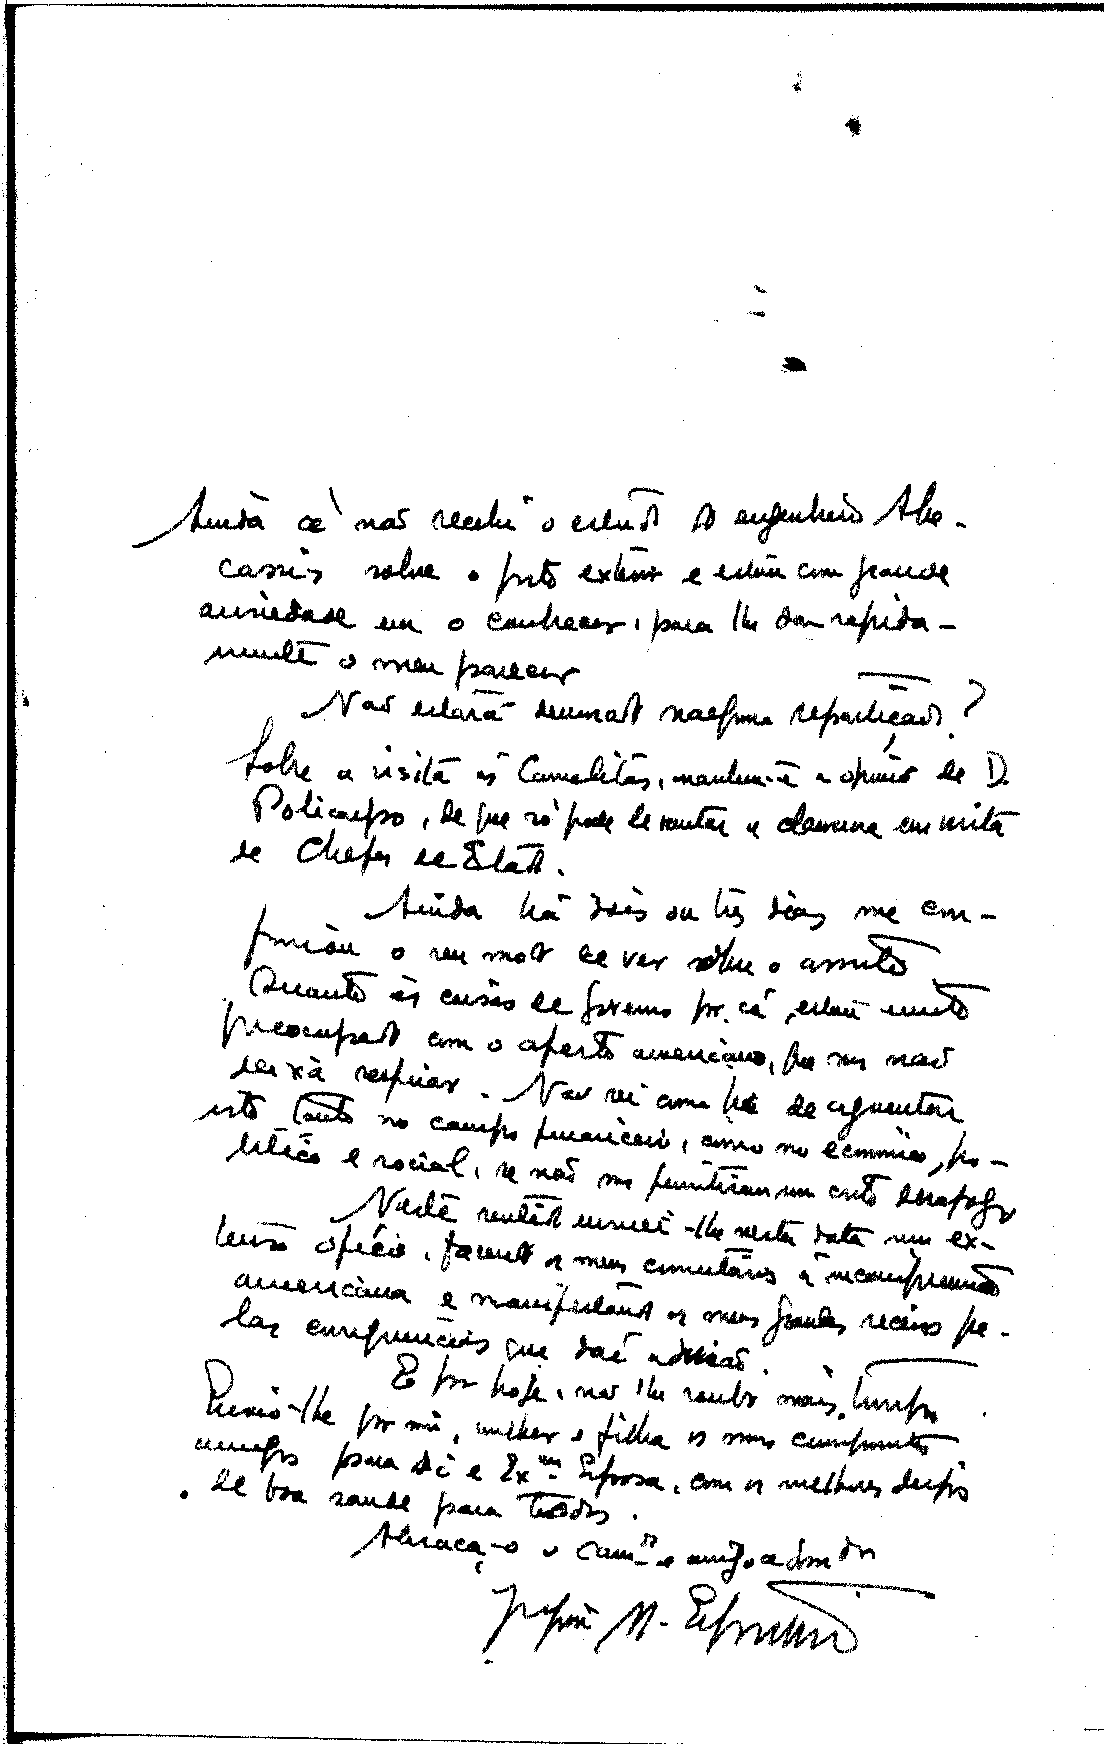 Ainda cá não recebi o estudo do engenheiro Abe-
cassis sobre o porto exterior e estou com grande
ansiedade em o conhecer, para lhe dar rapida-
mente o meu parecer
Não estará demorado nalguma repartição?
Sobre a visita às Carmelitas, mantem-se a opinião de D.
Policarpo, de que só pode levantar a clausura em visita
de Chefes de Estado.
Ainda há dois ou três dias me con-
firmou o seu modo de ver sobre o assunto
Quanto às coisas de governo por cá, estou muito
preocupado com o aperto americano, que nos não
deixa respirar. Não sei como há de aguentar
isto tanto no campo financeiro, como no económico, po-
lítico e social, se não nos permitirem um certo desafogo
Neste sentido enviei-lhe nesta data um ex-
tenso ofício, fazendo os meus comentários à incompreensão
americana e manifestando os meus grandes receios pe-
las consequências que daí advirão.
E por hoje, não lhe roubo mais tempo.
Envio-lhe por mim, mulher e filha os meus cumprimentos
amigos para si e Exma Esposa, com os melhores desejos
de boa saude para todos.
Abraça-o o camda e amigo admdor